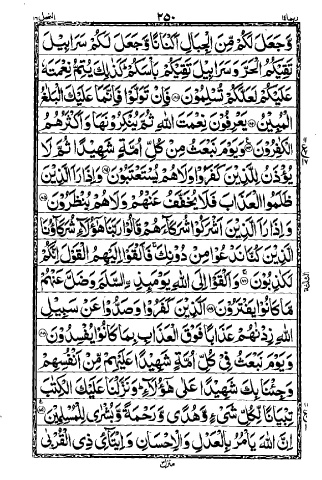 ربما ١٤ ٢٥٠ النحل ١٦
وَّجَعَلَ لَكُمْ مِّنَ الْجِبَالِ اَكْنَانًا وَّجَعَلَ لَكُمْ سَرَابِيْلَ
تَقِيْكُمُ الْحَرَّ وَسَرَابِيْلَ تَقِيْكُمْ بَاْسَكُمْ كَذٰلِكَ يُتِمُّ نِعْمَتَهٗ
عَلَيْكُمْ لَعَلَّكُمْ تُسْلِمُوْنَ ۝ فَاِنْ تَوَلَّوْا فَاِنَّمَا عَلَيْكَ الْبَلٰغُ
الْمُبِيْنُ ۝ يَعْرِفُوْنَ نِعْمَتَ اللّٰهِ ثُمَّ يُنْكِرُوْنَهَا وَاَكْثَرُهُمُ
الْكٰفِرُوْنَ ۝ وَيَوْمَ نَبْعَثُ مِنْ كُلِّ اُمَّةٍ شَهِيْدًا ثُمَّ لَا
يُؤْذَنُ لِلَّذِيْنَ كَفَرُوْا وَلَا هُمْ يُسْتَعْتَبُوْنَ ۝ وَاِذَا رَاَ الَّذِيْنَ
ظَلَمُوا الْعَذَابَ فَلَا يُخَفَّفُ عَنْهُمْ وَلَا هُمْ يُنْظَرُوْنَ ۝
وَاِذَا رَاَ الَّذِيْنَ اَشْرَكُوْا شُرَكَآءَهُمْ قَالُوْا رَبَّنَا هٰٓؤُلَآءِ شُرَكَآؤُنَا
الَّذِيْنَ كُنَّا نَدْعُوْا مِنْ دُوْنِكَ فَاَلْقَوْا اِلَيْهِمُ الْقَوْلَ اِنَّكُمْ
لَكٰذِبُوْنَ ۝ وَاَلْقَوْا اِلَى اللّٰهِ يَوْمَئِذِ ۨالسَّلَمَ وَضَلَّ عَنْهُمْ
مَّا كَانُوْا يَفْتَرُوْنَ ۝ اَلَّذِيْنَ كَفَرُوْا وَصَدُّوْا عَنْ سَبِيْلِ
اللّٰهِ زِدْنٰهُمْ عَذَابًا فَوْقَ الْعَذَابِ بِمَا كَانُوْا يُفْسِدُوْنَ ۝
وَيَوْمَ نَبْعَثُ فِيْ كُلِّ اُمَّةٍ شَهِيْدًا عَلَيْهِمْ مِّنْ اَنْفُسِهِمْ
وَجِئْنَا بِكَ شَهِيْدًا عَلٰى هٰٓؤُلَآءِ وَنَزَّلْنَا عَلَيْكَ الْكِتٰبَ
تِبْيَانًا لِّكُلِّ شَيْءٍ وَّهُدًى وَّرَحْمَةً وَّبُشْرٰى لِلْمُسْلِمِيْنَ ۝
اِنَّ اللّٰهَ يَاْمُرُ بِالْعَدْلِ وَالْاِحْسَانِ وَاِيْتَآئِ ذِي الْقُرْبٰى
منزل